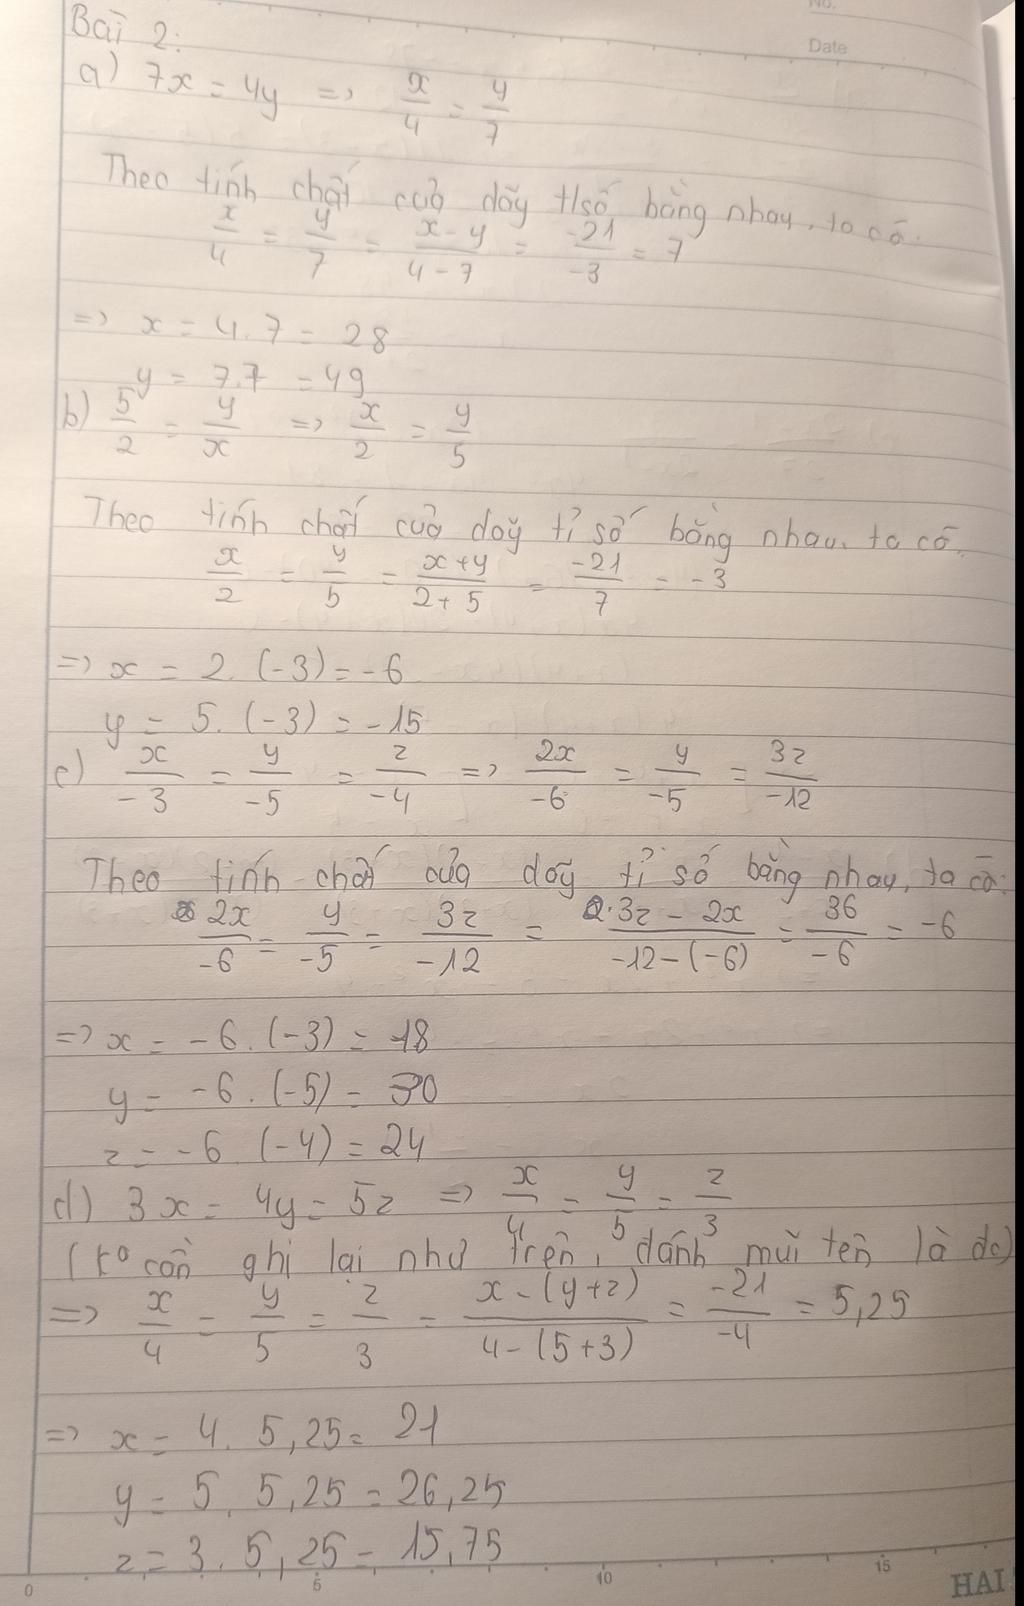 No.
Date
Bài 2:
a) 7x = 4y => x/4 = y/7
Theo tính chất của dãy tỉ số bằng nhau, ta có:
x/4 = y/7 = (x - y)/(4 - 7) = -21/-3 = 7
=> x = 4.7 = 28
y = 7.7 = 49
b) 5/2 = y/x => x/2 = y/5
Theo tính chất của dãy tỉ số bằng nhau, ta có
x/2 = y/5 = (x + y)/(2 + 5) = -21/7 = -3
=> x = 2. (-3) = -6
y = 5. (-3) = -15
c) x/-3 = y/-5 = z/-4 => 2x/-6 = y/-5 = 3z/-12
Theo tính chất của dãy tỉ số bằng nhau, ta có:
2x/-6 = y/-5 = 3z/-12 = (3z - 2x)/(-12 - (-6)) = 36/-6 = -6
=> x = -6. (-3) = 18
y = -6. (-5) = 30
z = -6. (-4) = 24
d) 3x = 4y = 5z => x/4 = y/5 = z/3
(ko cần ghi lại như trên, đánh mũi tên là đc)
=> x/4 = y/5 = z/3 = (x - (y + z))/(4 - (5 + 3)) = -21/-4 = 5,25
=> x = 4. 5,25 = 21
y = 5. 5,25 = 26,25
z = 3. 5,25 = 15,75
0 5 10 15 HAI